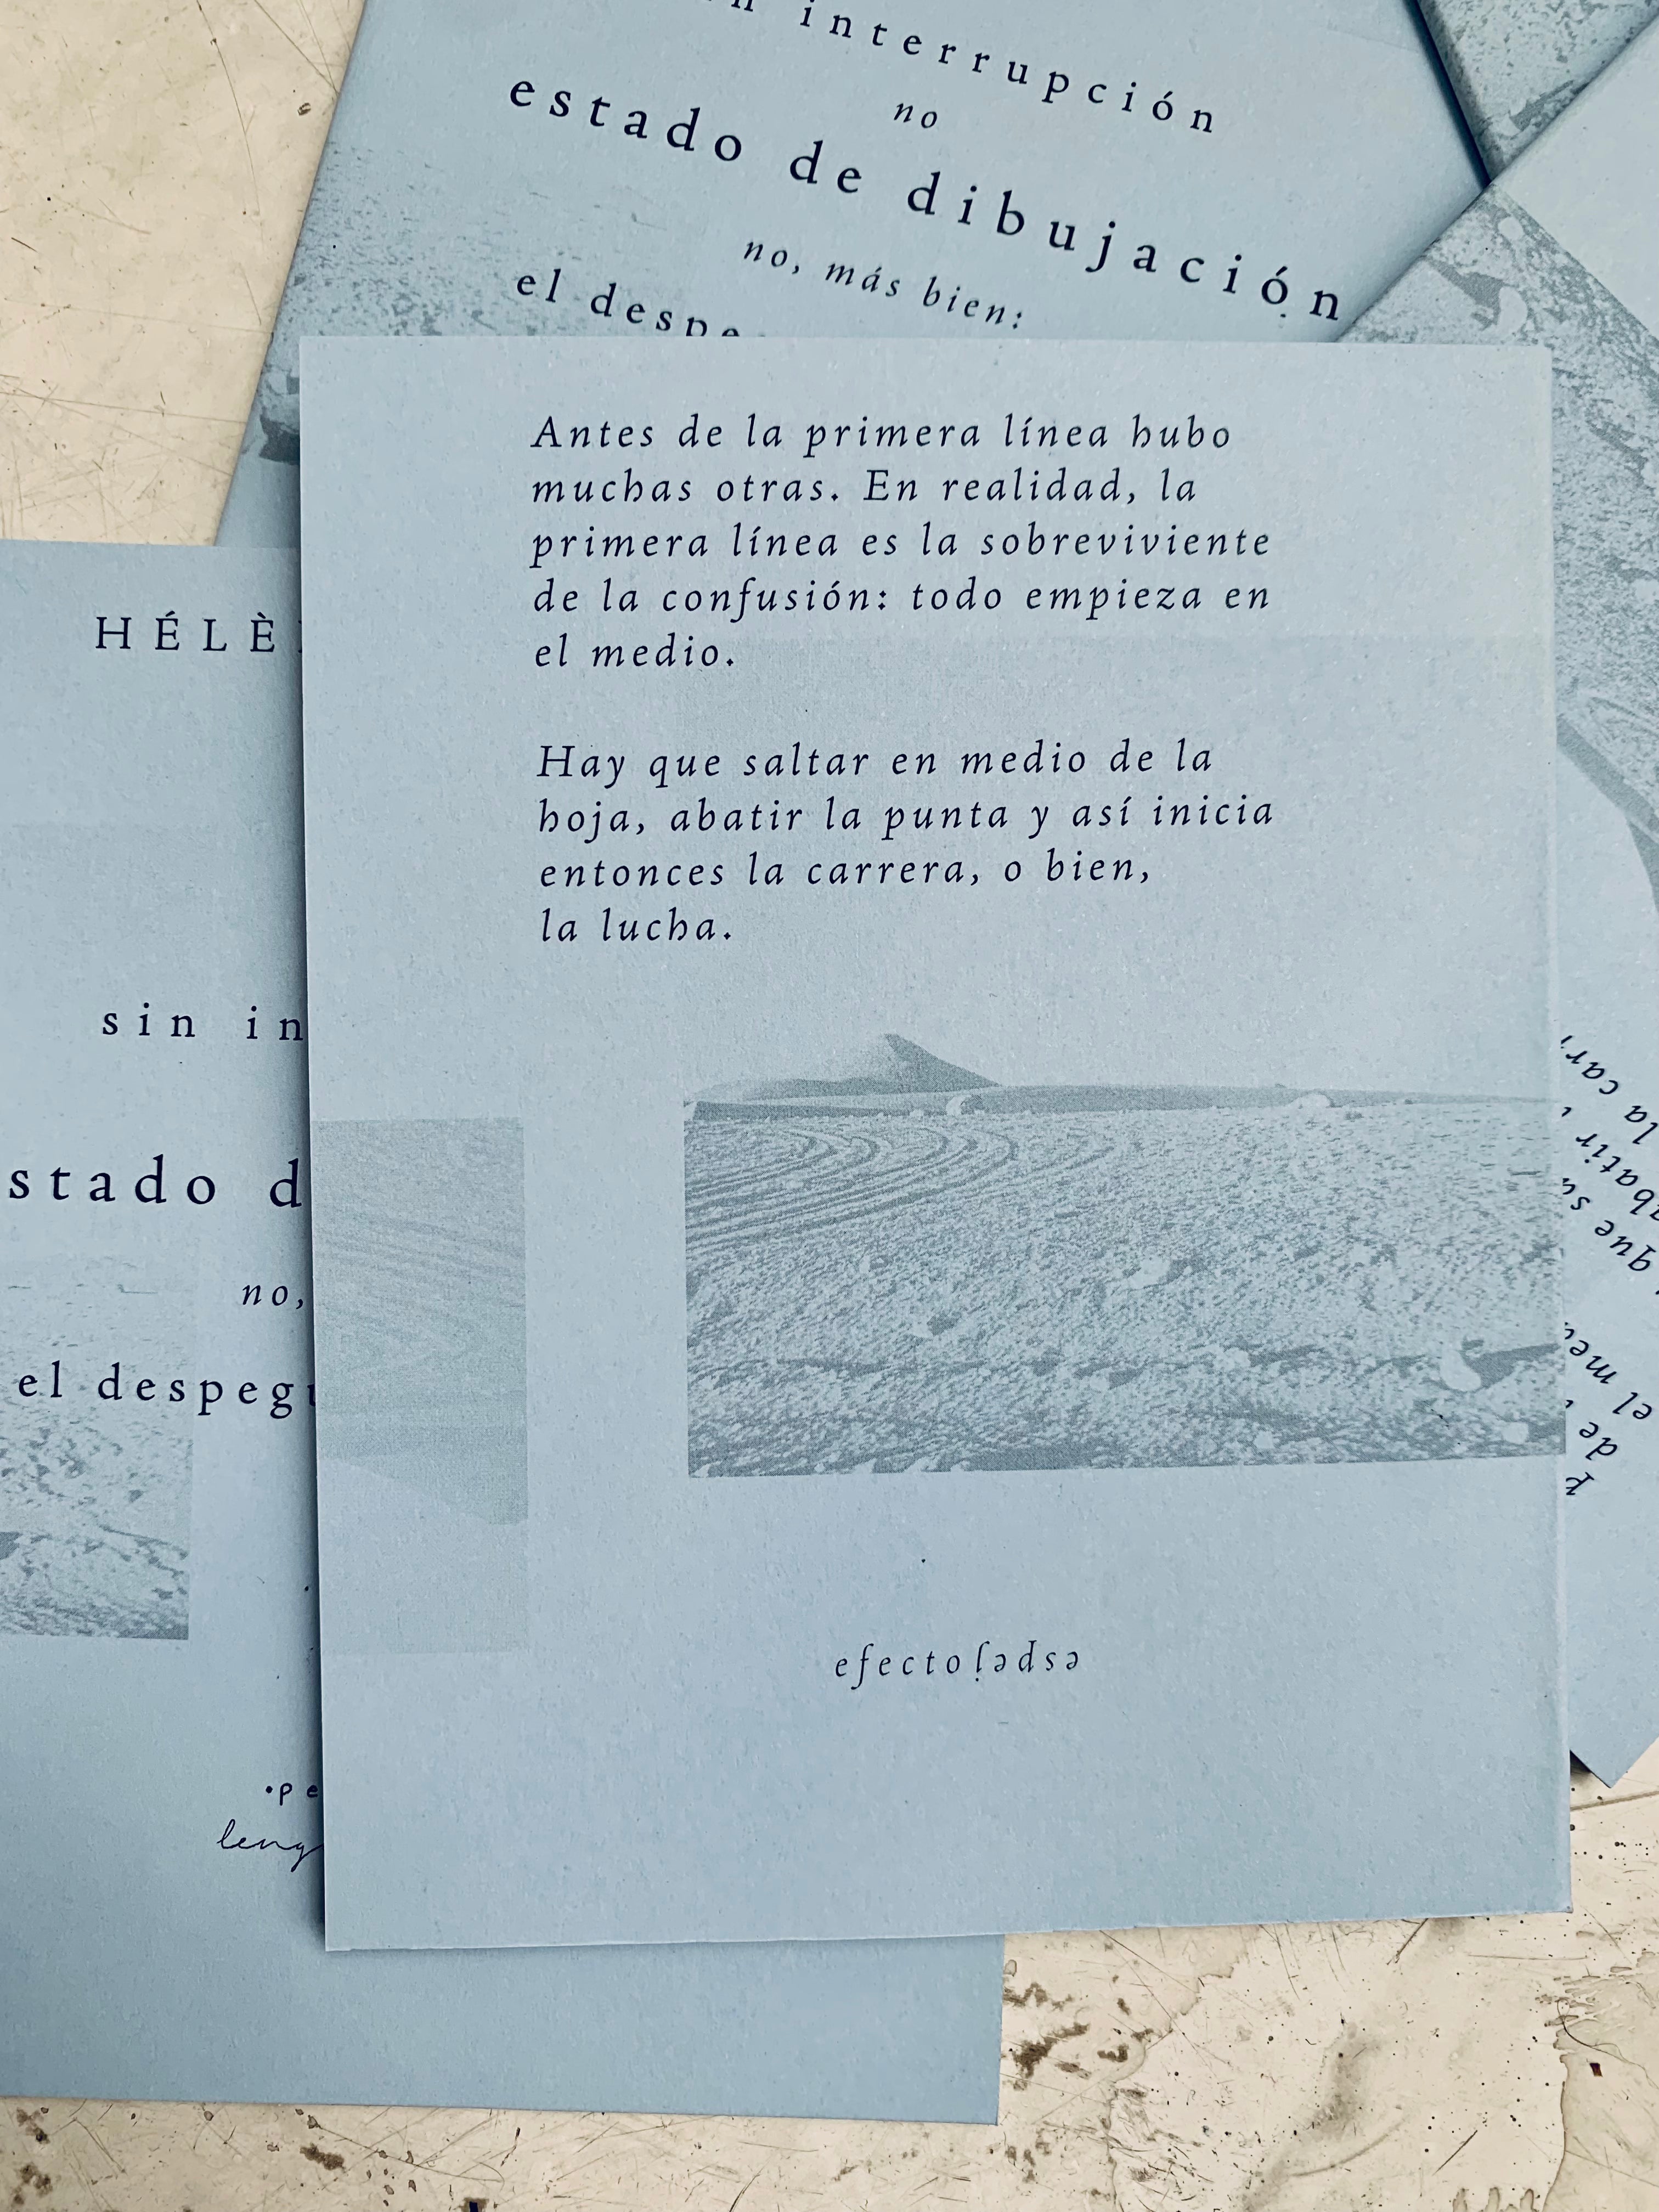 interrupción
no
estado de dibujación
no, más bien:
el
Antes de la primera línea hubo
muchas otras. En realidad, la
primera línea es la sobreviviente
de la confusión: todo empieza en
el medio.
Hay que saltar en medio de la
hoja, abatir la punta y así inicia
entonces la carrera, o bien,
la lucha.
efectoɾədsə
sin
no,
el
la
abatir
que
el
de